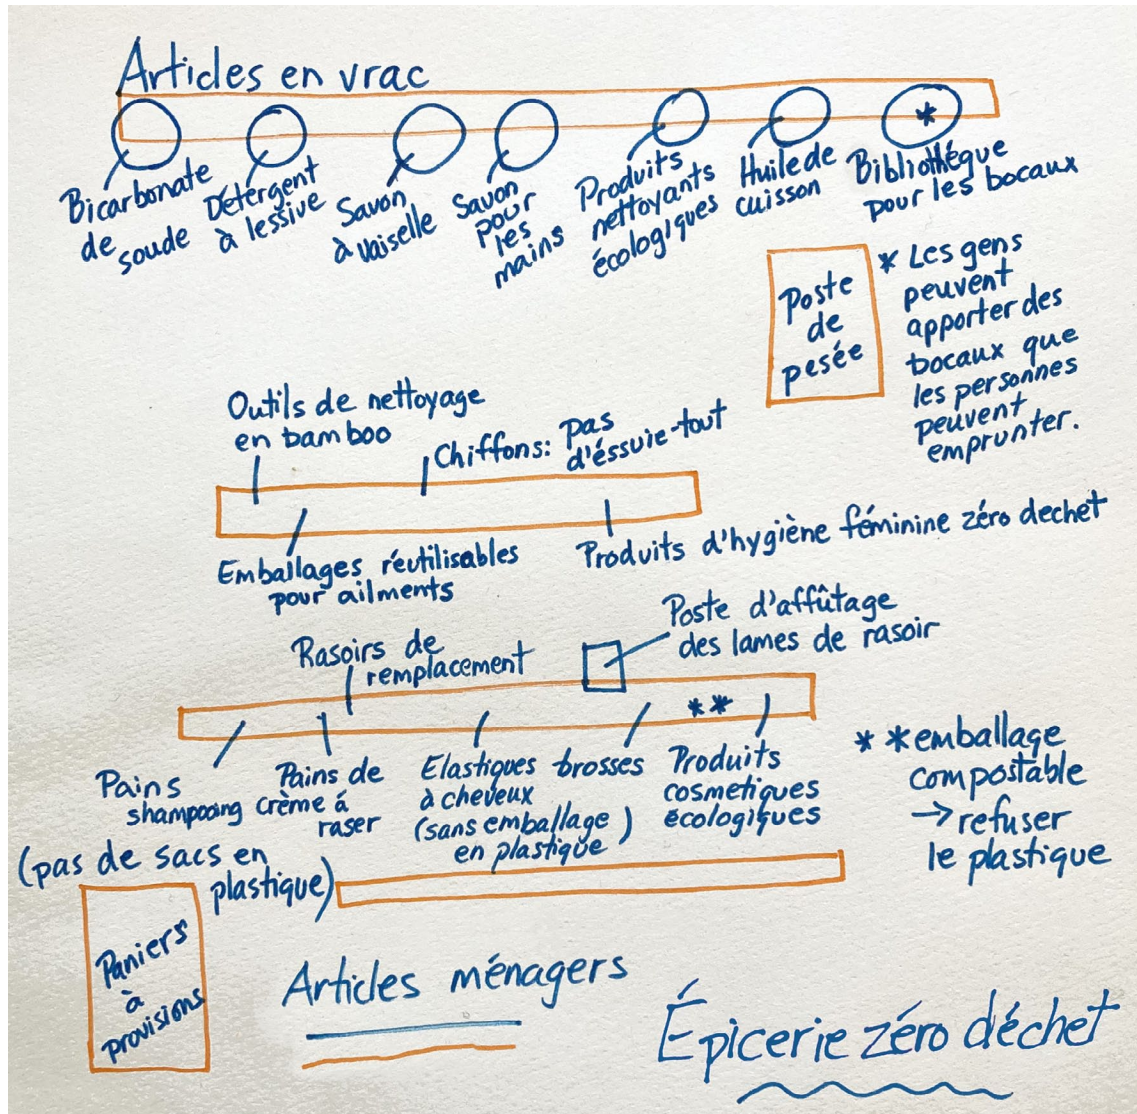 Articles en vrac
Bicarbonate
de
soude
Détergent
à lessive
Savon
à vaiselle
Savon
pour
les
mains
Produits
nettoyants
écologiques
Huile de
cuisson
*
Bibliothéque
pour les bocaux
Poste
de
pesée
* Les gens
peuvent
apporter des
bocaux que
les personnes
peuvent
emprunter.
Outils de nettoyage
en bamboo
Chiffons: pas
d'éssuie-tout
Emballages réutilisables
pour ailments
Produits d'hygiène féminine zéro dechet
Rasoirs de
remplacement
Poste d'affûtage
des lames de rasoir
**
Pains
shampooing
Pains de
crème á
raser
Elastiques
à cheveux
(sans emballage
en plastique)
brosses
Produits
cosmetiques
écologiques
**emballage
compostable
→ refuser
le plastique
(pas de sacs en
plastique)
Paniers
à
provisions
Articles ménagers
Épicerie zéro déchet